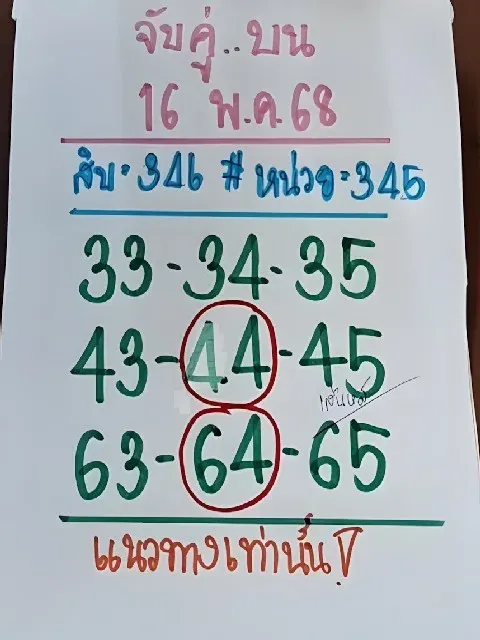 จับคู่..บน
16 พ.ค.68
สิบ=346 # หน่วย=345
33-34-35
43-44-45
63-64-65
แนวทางเท่านั้น!